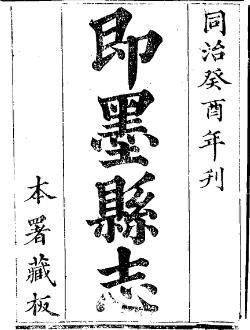 同治癸酉年刊
即墨縣志
本署藏板